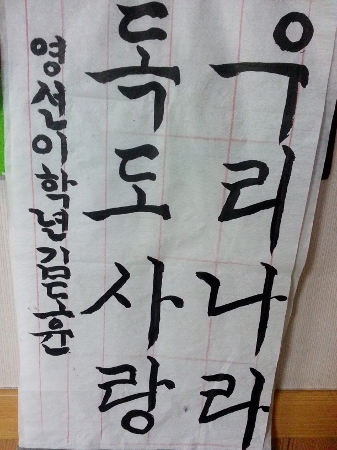 우리나라
독도사랑
영선이학년김도윤